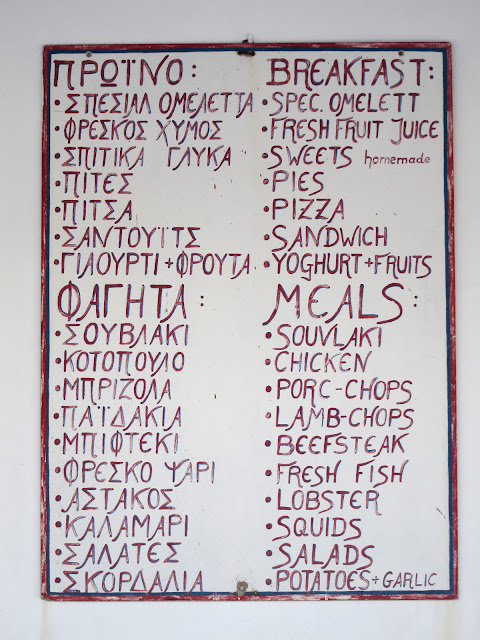 ΠΡΩΪΝΟ:
•ΣΠΕΣΙΑΛ ΟΜΕΛΕΤΤΑ
•ΦΡΕΣΚΟΣ ΧΥΜΟΣ
•ΣΠΙΤΙΚΑ ΓΛΥΚΑ
•ΠΙΤΕΣ
•ΠΙΤΣΑ
•ΣΑΝΤΟΥΪΤΣ
•ΓΙΑΟΥΡΤΙ+ΦΡΟΥΤΑ
ΦΑΓΗΤΑ:
•ΣΟΥΒΛΑΚΙ
•ΚΟΤΟΠΟΥΛΟ
•ΜΠΡΙΖΟΛΑ
•ΠΑΪΔΑΚΙΑ
•ΜΠΙΦΤΕΚΙ
•ΦΡΕΣΚΟ ΨΑΡΙ
•ΑΣΤΑΚΟΣ
•ΚΑΛΑΜΑΡΙ
•ΣΑΛΑΤΕΣ
•ΣΚΟΡΔΑΛΙΑ
BREAKFAST:
•SPEC. OMELETT
•FRESH FRUIT JUICE
•SWEETS homemade
•PIES
•PIZZA
•SANDWICH
•YOGHURT+FRUITS
MEALS:
•SOUVLAKI
•CHICKEN
•PORC-CHOPS
•LAMB-CHOPS
•BEEFSTEAK
•FRESH FISH
•LOBSTER
•SQUIDS
•SALADS
•POTATOES+GARLIC